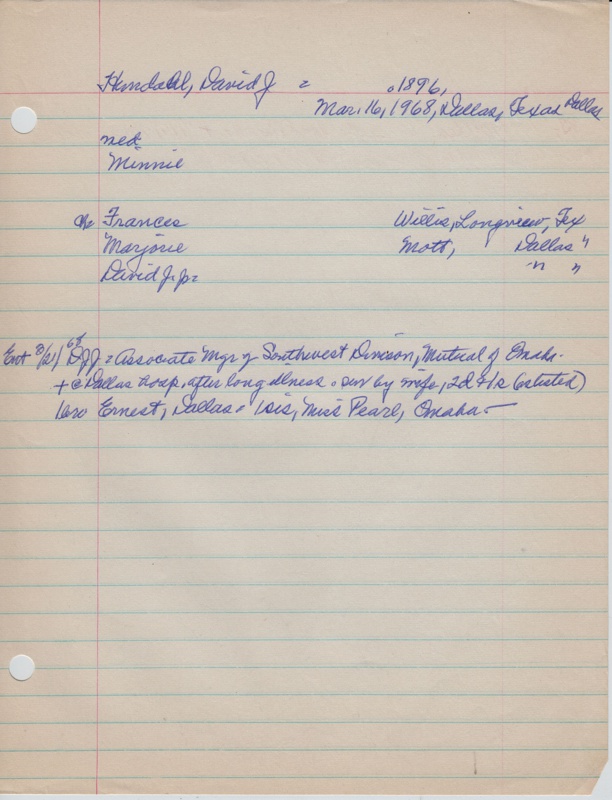 David J = 1896,
Mar. 16, 1968, Dallas, Texas Dallas
med
Minnie
ch Frances Willis, Longview, Tex
Marjorie Mott, Dallas "
David J. Jr = " "
Ent 3/21/68 DJJ = Associate Mgr of Southwest Division, Mutual of Omaha.
+ @ Dallas hosp, after long illness. sur by wife, 2d + 1s (as listed)
1bro Ernest, Dallas = 1sis, Miss Pearl, Omaha -